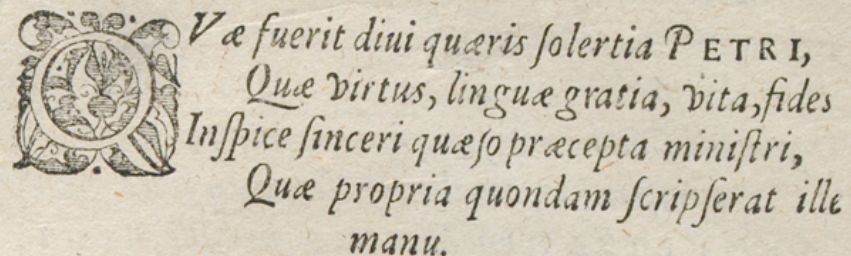 QVæ fuerit diui quæris ſolertia PETRI,
Quæ virtus, linguæ gratia, vita, fides
Inſpice ſinceri quæſo præcepta miniſtri,
Quæ propria quondam ſcripſerat ille
manu.